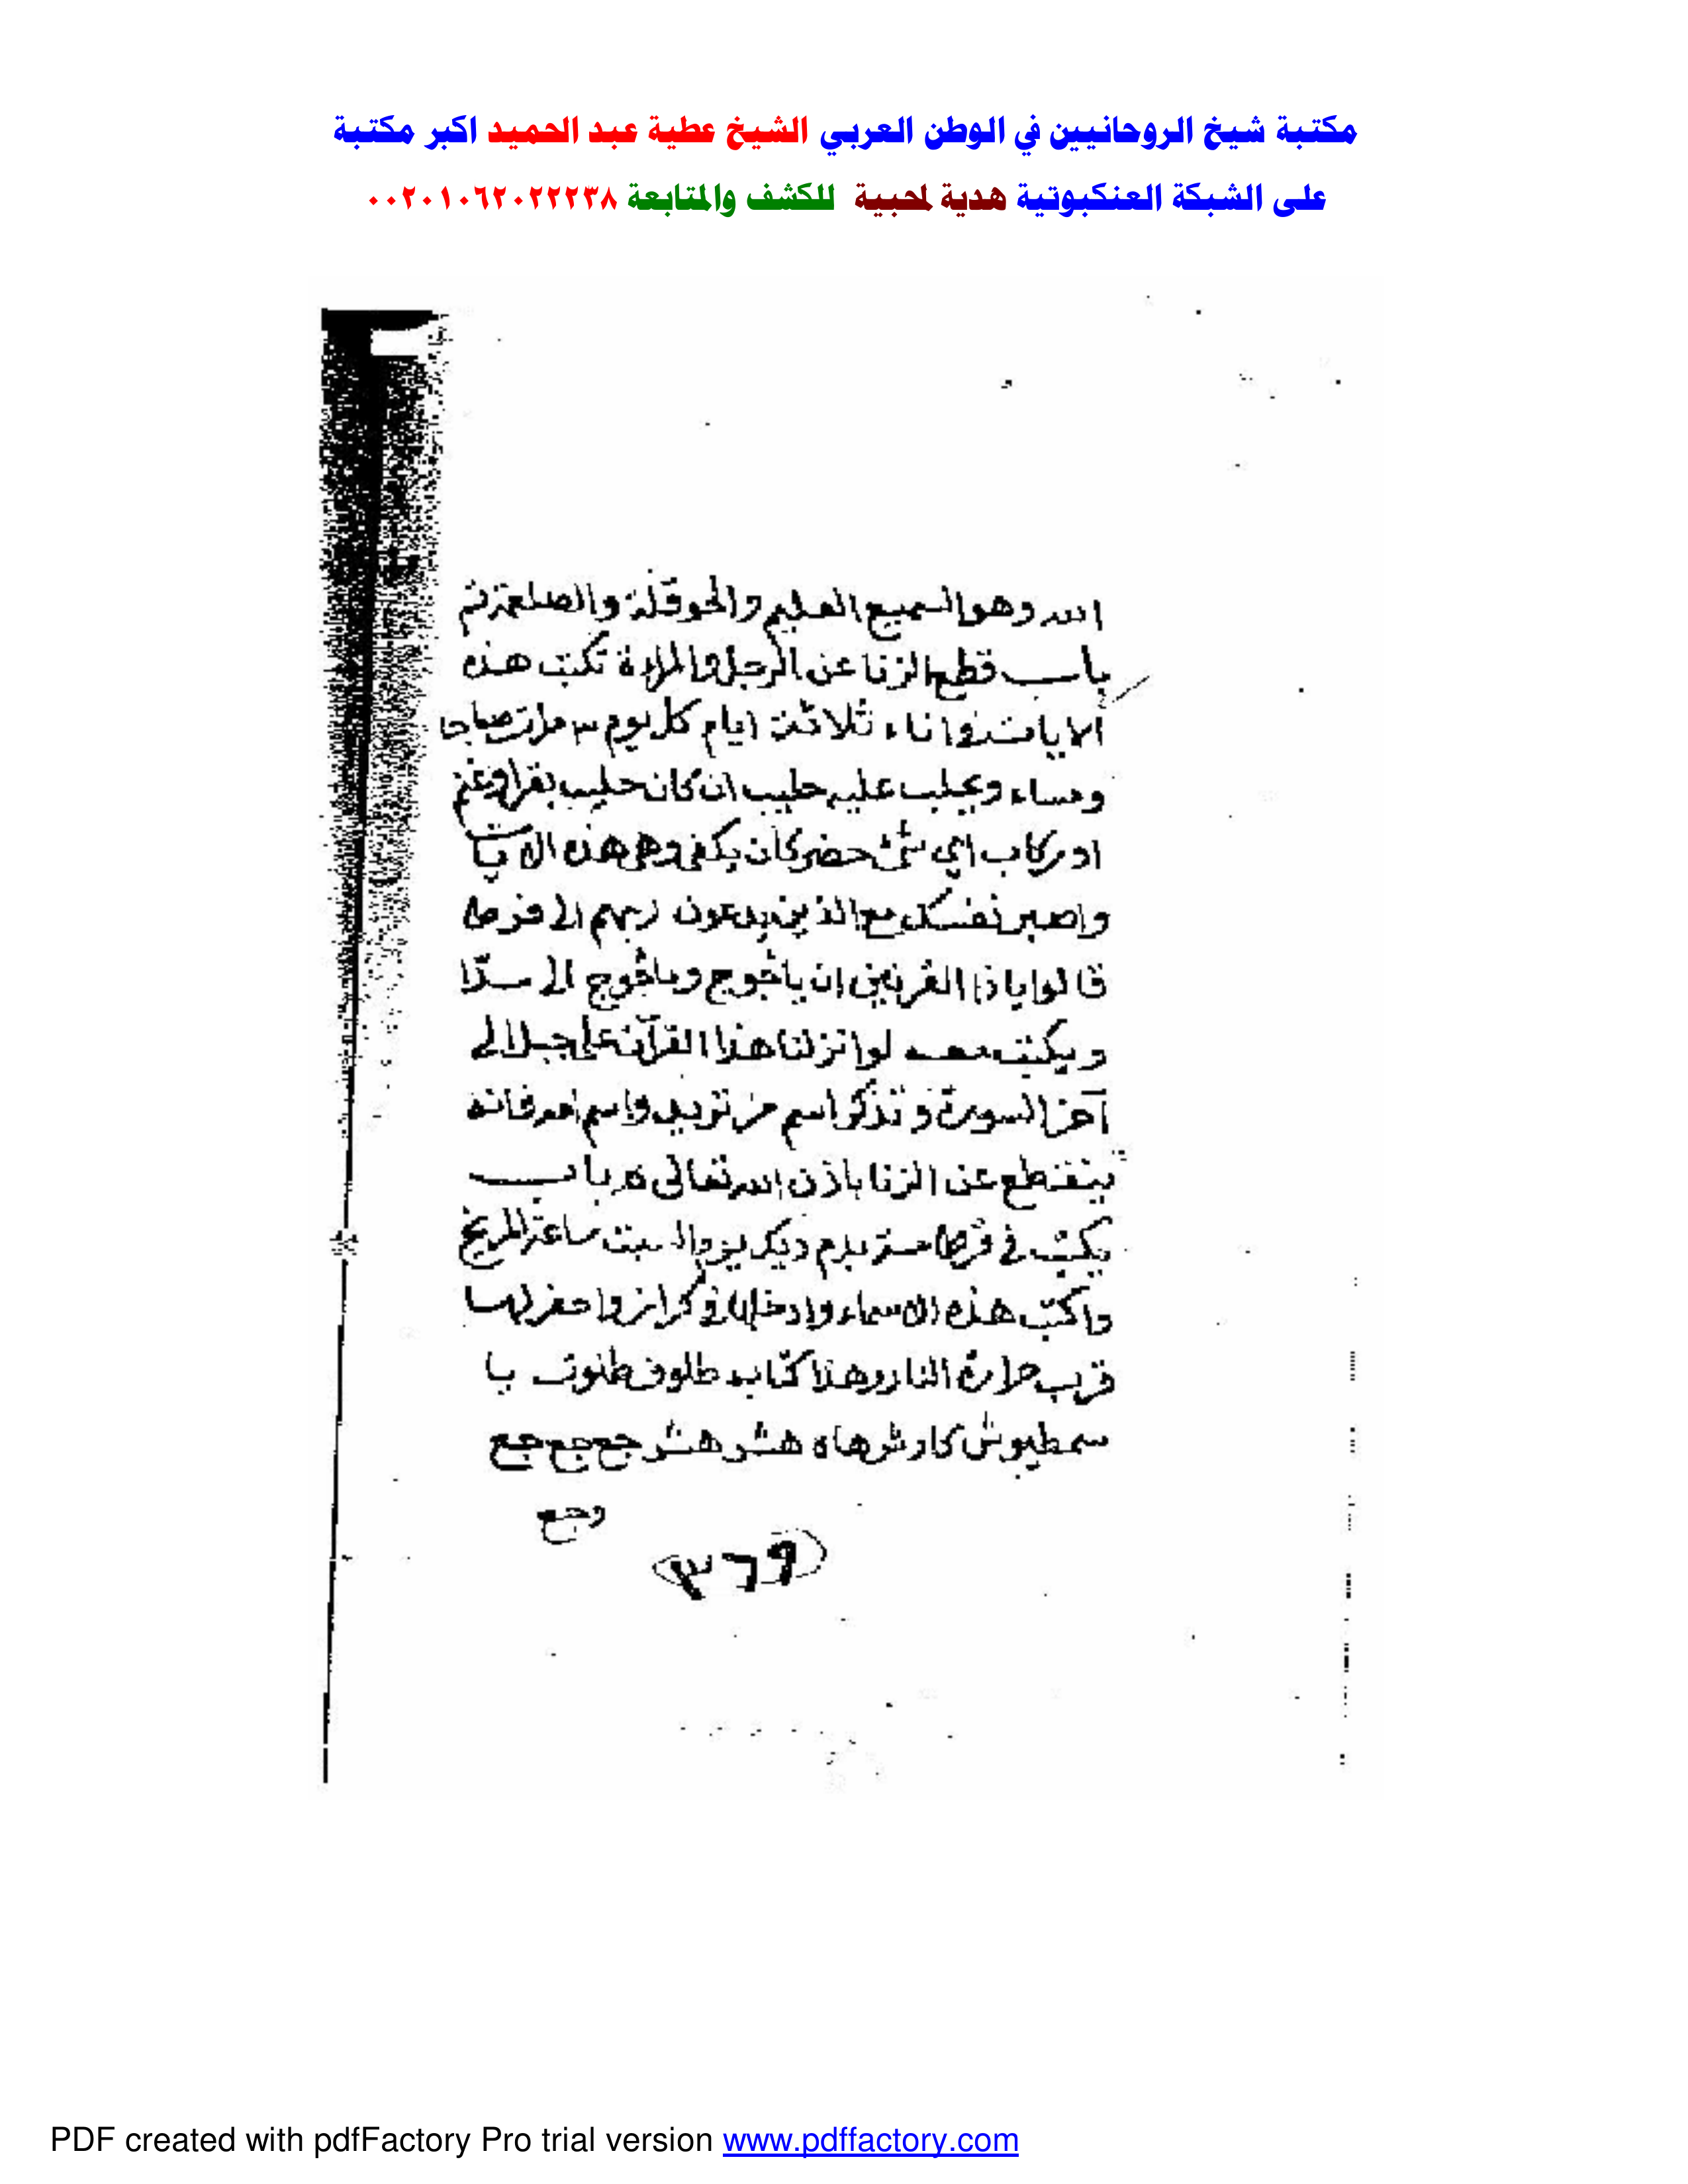 مكتبة شيخ الروحانيين في الوطن العربي الشيخ عطية عبد الحميد اكبر مكتبة
على الشبكة العنكبوتية هدية لمحبية للكشف والمتابعة ٠٠٢٠١٠٦٢٠٢٢٢٣٨
الله وهو السميع العليم والحوقلة والصلعة تم
باب قطع الزنا عن الرجل والمراءة تكتب هذه
الايات اناء ثلاثة ايام كل يوم ٣ مرات صباحا
ومساء ويحلب عليه حليب ان كان حليب بقر او غنم
او ركاب اي شئ حضر كان يكفى وهى هذه الايات
واصبر نفسك مع الذين يدعون ربهم الى فرطا
قالوا يا ذا القرنين ان ياجوج وماجوج الى سدّا
ويكتب معه لو انزلنا هذا القرآن على جبل الى
آخر السورة وتذكر اسم من تريد واسم امه فانه
ينقطع عن الزنا باذن الله تعالى ه باب
يكتب في بدم ديك يوم السبت ساعة المريخ
واكتب هذه الاسماء وادخلها في واحفر لها
قرب حرارة النار وهذا كتابه طلوف طلوف يا
سمطيوش كارشهاه هشر هشر جع جع جع
وجع
٣٦٩
PDF created with pdfFactory Pro trial version www.pdffactory.com